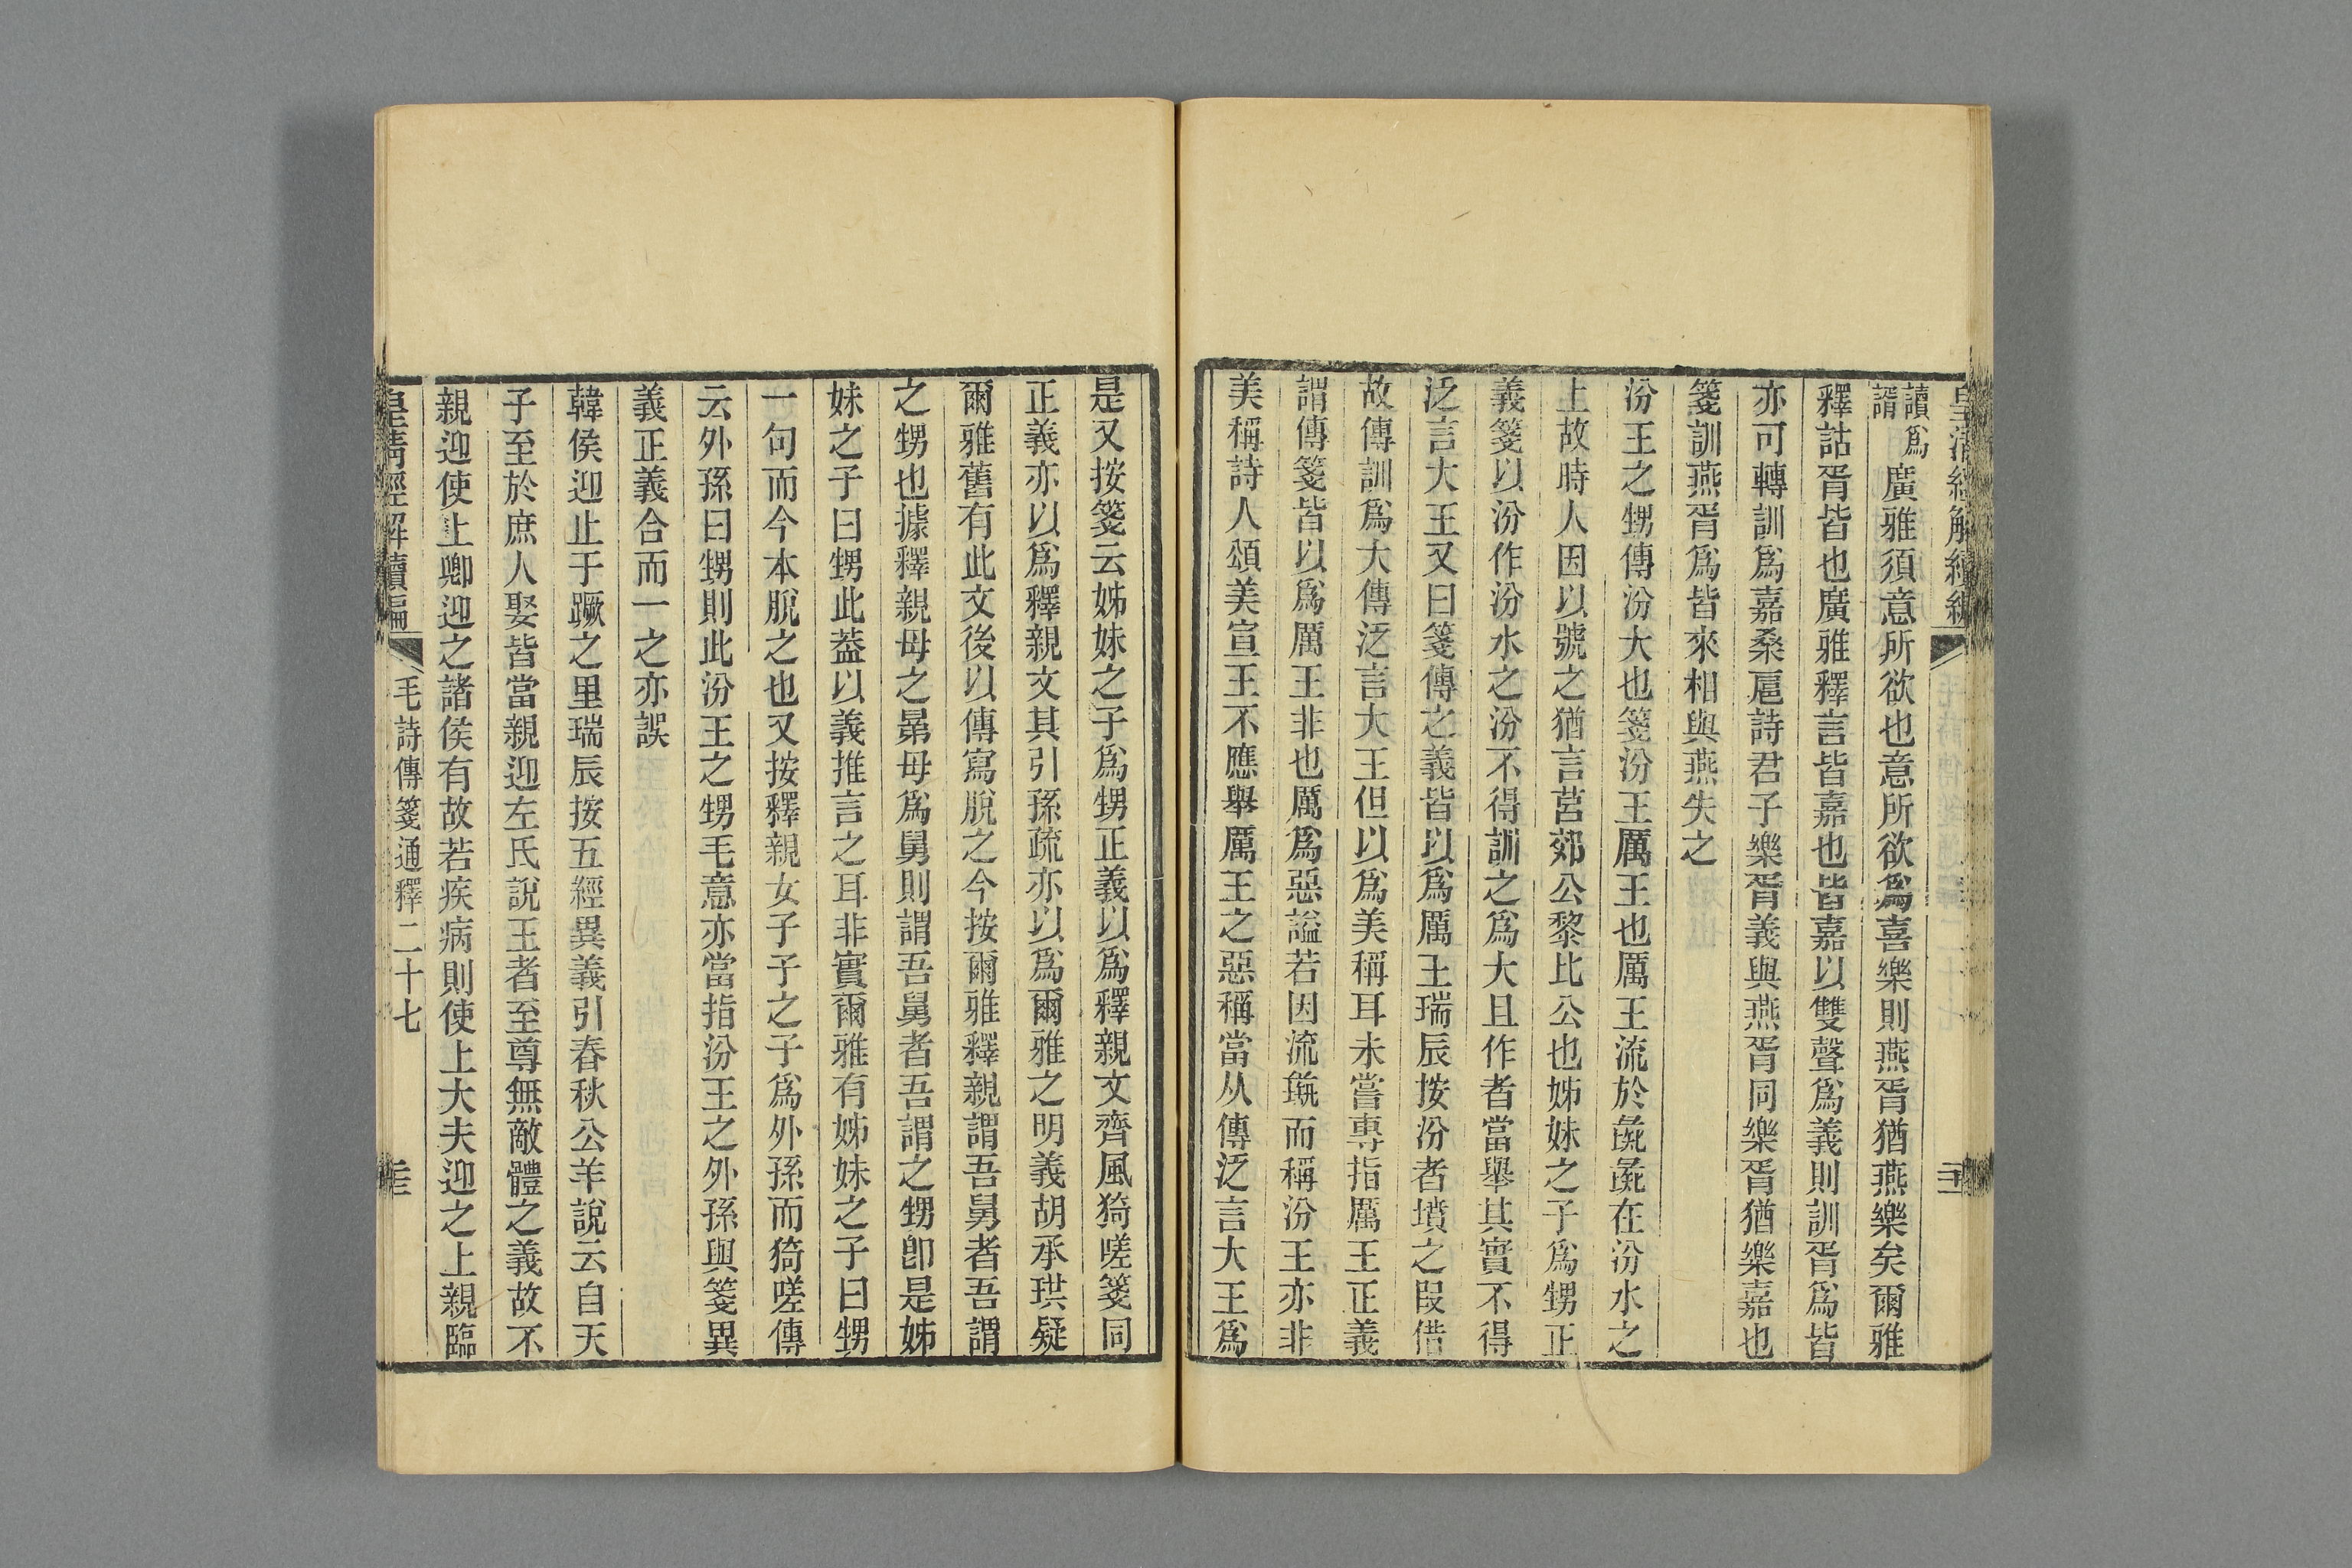 皇清經解續編
讀爲
謂
廣雅須意所欲也意所欲爲喜樂則燕胥猶燕樂矣爾雅
釋詁胥皆也廣雅釋言皆嘉也皆嘉以雙聲爲義則訓胥爲皆
亦可轉訓爲嘉桑扈詩君子樂胥義與燕胥同樂胥猶樂嘉也
箋訓燕胥爲皆來相與燕失之
汾王之甥傳汾大也箋汾王厲王也厲王流於彘彘在汾水之
上故時人因以號之猶言莒郊公黎比公也姊妹之子爲甥正
義箋以汾作汾水之汾不得訓之爲大且作者當舉其實不得
泛言大王又曰箋傳之義皆以爲厲王瑞辰按汾者墳之叚借
故傳訓爲大傳泛言大王但以爲美稱耳未嘗專指厲王正義
謂傳箋皆以爲厲王非也厲爲惡謚若因流彘而稱汾王亦非
美稱詩人頌美宣王不應舉厲王之惡稱當从傳泛言大王爲
是又按箋云姊妹之子爲甥正義以爲釋親文齊風猗嗟箋同
正義亦以爲釋親文其引孫疏亦以爲爾雅之明義胡承珙疑
爾雅舊有此文後以傳寫脫之今按爾雅釋親謂吾舅者吾謂
之甥也據釋親母之晜弟爲舅則謂吾舅者吾謂之甥卽是姊
妹之子曰甥此葢以義推言之耳非實爾雅有姊妹之子曰甥
一句而今本脫之也又按釋親女子子之子爲外孫而猗嗟傳
云外孫曰甥則此汾王之甥毛意亦當指汾王之外孫與箋異
義正義合而一之亦誤
韓侯迎止于蹶之里瑞辰按五經異義引春秋公羊說云自天
子至於庶人娶皆當親迎左氏說王者至尊無敵體之義故不
親迎使上卿迎之諸侯有故若疾病則使上大夫迎之上親臨
皇清經解續編
毛詩傳箋通釋二十七